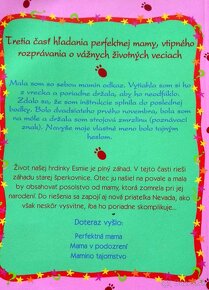 Tretia časť hľadania perfektnej mamy, vtipného
rozprávania o vážnych životných veciach
Mala som so sebou mamin odkaz. Vytiahla som si ho
z vrecka a poriadne držala, aby ho neodfúklo.
Zdalo sa, že som inštrukcie splnila do poslednej
bodky. Bolo dvadsiateho prvého novembra, bola som
na móle a držala som strojovú zmrzlinu (poznávací
znak). Navyše moje vlastné meno bolo tajným
heslom.
Život našej hrdinky Esmie je plný záhad. V tejto časti rieši
záhadu starej šperkovnice. Otec ju našiel na povale a mala
by obsahovať posolstvo od mamy, ktorá zomrela pri jej
narodení. Do riešenia sa zapojí aj nová priateľka Nevada, ako
však neskôr vysvitne, iba ho poriadne skomplikuje...
Doteraz vyšlo:
Perfektná mama
Mama v podozrení
Mamino tajomstvo